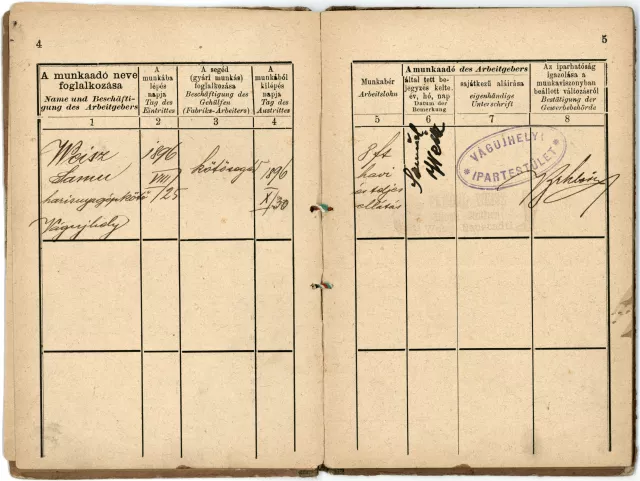 4
A munkaadó neve
foglalkozása
Name und Beschäfti-
gung des Arbeitgebers
A
munkába
lépés
napja
Tag des
Eintrittes
A segéd
(gyári munkás)
foglalkozása
Beschäftigung des
Gehülfen
(Fabriks-Arbeiters)
A
munkából
kilépés
napja
Tag des
Austrittes
1
2
3
4
Weisz
Samu
harisnyagépkötő
Vágujhely
1896
VIII/25
kötősegéd
1896
X/30
5
Munkabér
Arbeitslohn
A munkaadó des Arbeitgebers
által tett be-
jegyzés kelte.
év, hó, nap
Datum der
Bemerkung
sajátkezű aláírása
eigenhändige
Unterschrift
Az iparhatóság
igazolása a
munkaviszonyban
beállott változásról
Bestätigung der
Gewerbebehörde
5
6
7
8
8 ft
havi
és teljes
ellátás
Samuel
Weisz
VÁGUJHELYI
IPARTESTÜLET